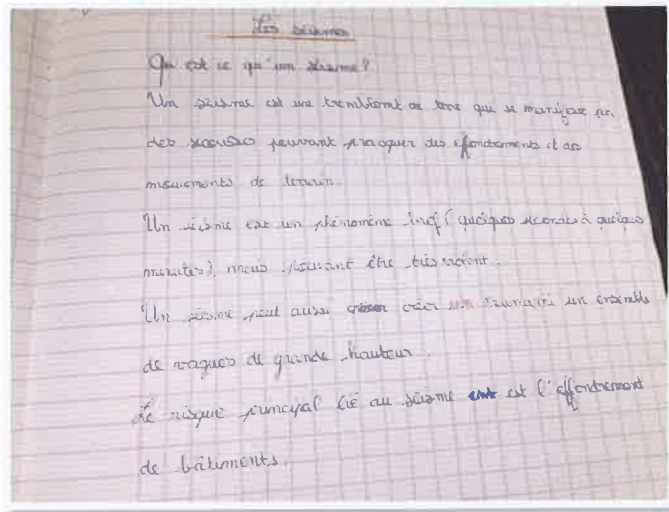 Les séismes
Qu'est ce qu'un séisme?
Un séisme est un tremblement de terre qui se manifeste par
des secousses pouvant provoquer des effondrements et des
mouvements de terrain.
Un séisme est un phénomène bref (quelques secondes à quelques
minutes), mais pouvant être très violent.
Un séisme peut aussi créer un tsunami un ensemble
de vagues de grande hauteur.
Le risque principal lié au séisme est l'effondrement
de bâtiments.